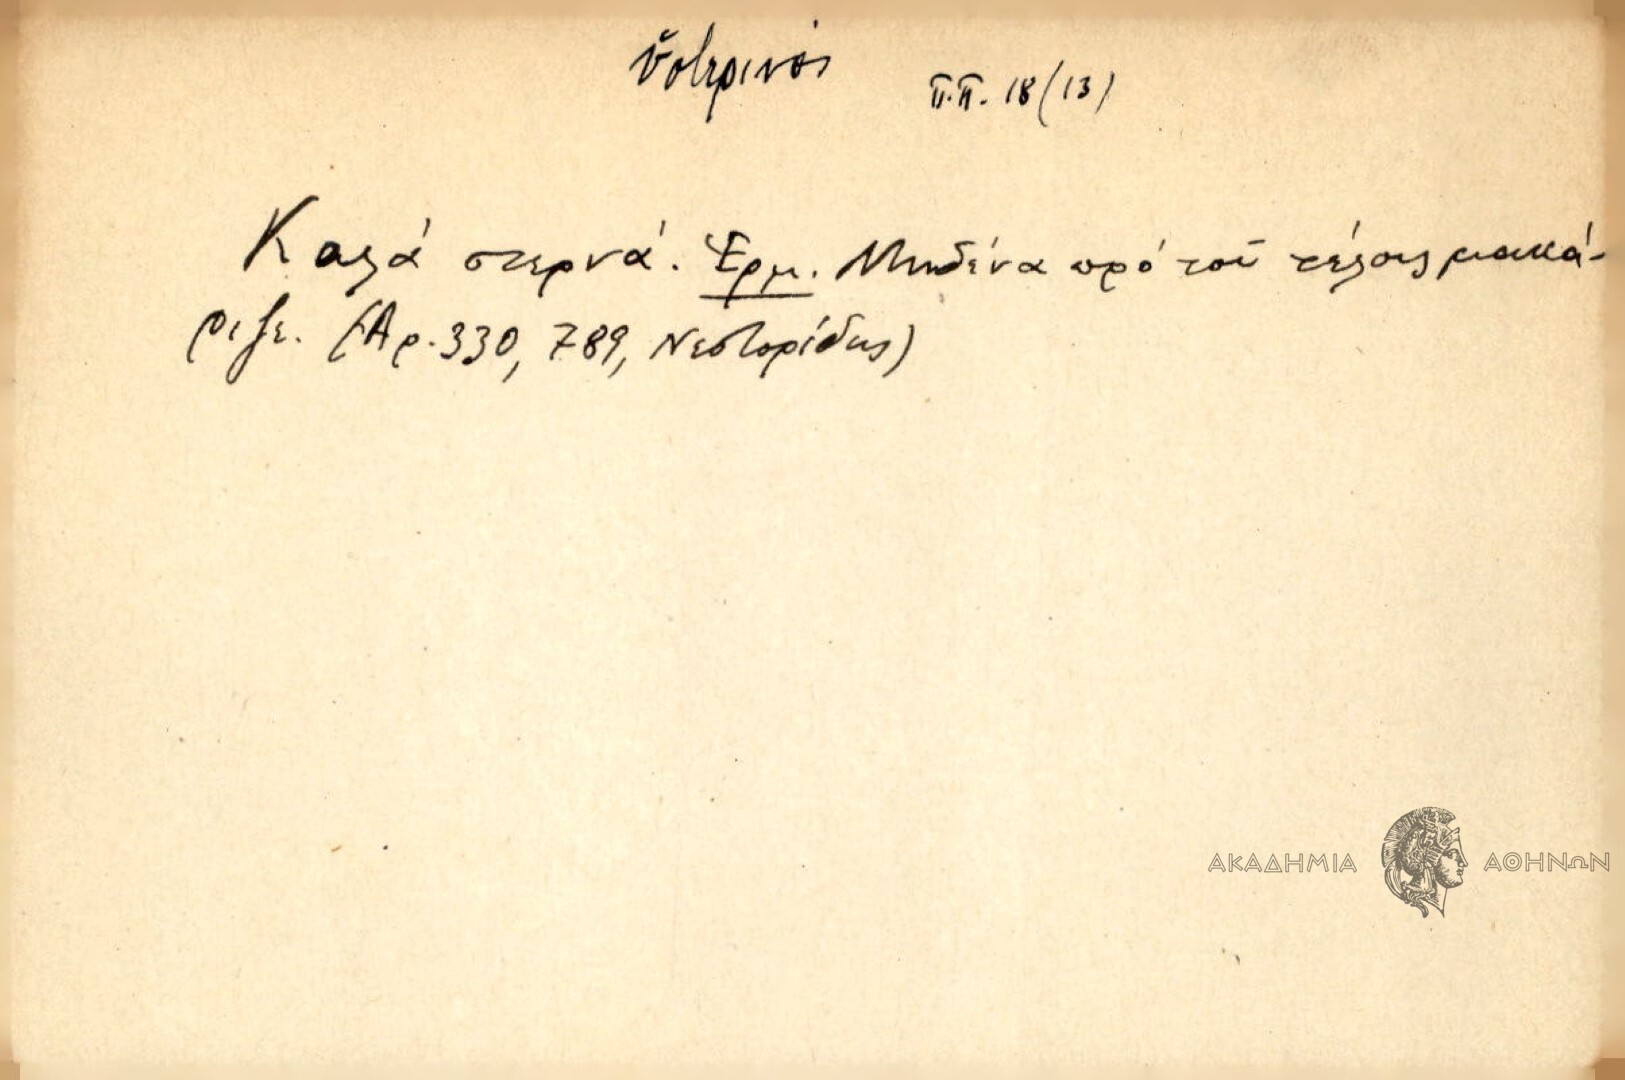 ὑστερινός
Π.Π. 18 (13)
Καλά στερνά. Ἑρμ. Μηδένα πρό τοῦ τέλους μακά-
ριζε. (Ἀρ. 330, 789, Νεστορίδης)
ΑΚΑΔΗΜΙΑ ΑΘΗΝΩΝ